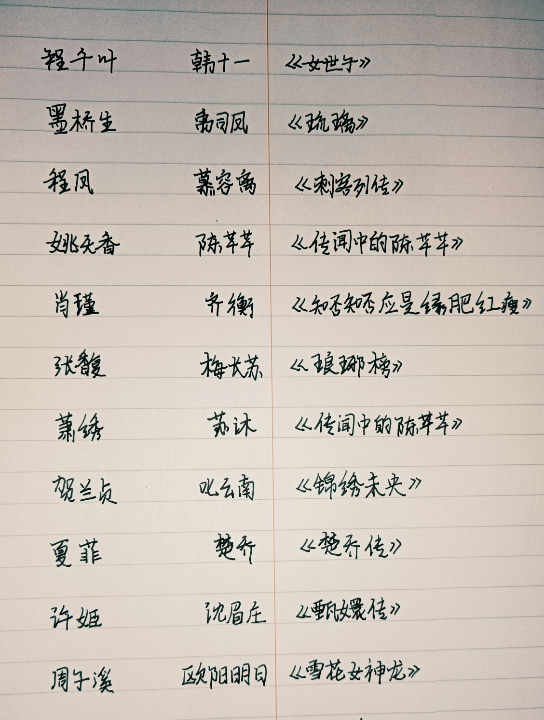 程千叶 韩十一 《女世子》
墨桥生 禹司凤 《琉璃》
程凤 慕容离 《刺客列传》
姚天香 陈芊芊 《传闻中的陈芊芊》
肖瑾 齐衡 《知否知否应是绿肥红瘦》
张馥 梅长苏 《琅琊榜》
萧绣 苏沐 《传闻中的陈芊芊》
贺兰贞 叱云南 《锦绣未央》
夏菲 楚乔 《楚乔传》
许姬 沈眉庄 《甄嬛传》
周子溪 欧阳明日 《雪花女神龙》